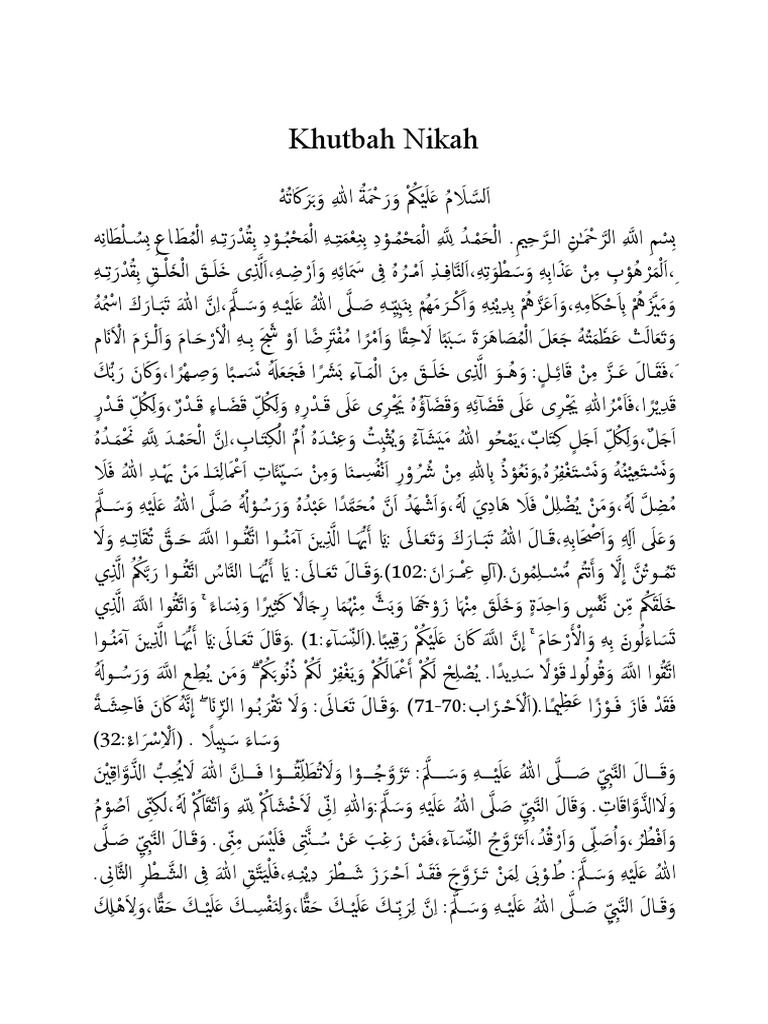 Khutbah Nikah
اَلسَّلَامُ عَلَيْكُمْ وَرَحْمَةُ اللهِ وَبَرَكَاتُهْ
بِسْمِ اللَّهِ الرَّحْمَـٰنِ الرَّحِيمِ. الْحَمْدُ لِلَّهِ الْمَحْمُوْدِ بِنِعْمَتِهِ الْمَحْبُوْدِ بِقُدْرَتِهِ الْمُطَاعِ بِسُلْطَانِه
ِ،اَلْمَرْهُوْبِ مِنْ عَذَابِهِ وَسَطْوَتِهِ،اَلنَّافِذِ اَمْرُهُ فِى سَمَائِهِ وَاَرْضِهِ،اَلَّذِى خَلَقَ الْخَلْقِ بِقُدْرَتِهِ
وَمَيَّزَهُمْ بِاَحْكَامِهِ،وَاَعَزَّهُمْ بِدِيْنِهِ وَاَكْرَمَهُمْ بِنَبِيِّهِ صَلَّى اللهُ عَلَيْهِ وَسَلَّمَ،اِنَّ اللهَ تَبَارَكَ اسْمُهُ
وَتَعَالَتْ عَظَمَتُهُ جَعَلَ الْمُصَاهَرَةَ سَبَبًا لَاحِقًا وَاَمْرًا مُفْتَرِضًا اَوْ شُبِّجَ بِهِ الْاَرْحَامَ وَاَلْزَمَ الْاَنَام
َ،فَقَالَ عَزَّ مِنْ قَائِلٍ: وَهُوَ الَّذِى خَلَقَ مِنَ الْمَآءِ بَشَرًا فَجَعَلَهُ نَسَبًا وَصِهْرًا،وَكَانَ رَبُّكَ
قَدِيْرًا،فَاَمْرُاللهِ يَجْرِى عَلَى قَضَائِهِ وَقَضَاؤُهُ يَجْرِى عَلَى قَدْرِهِ وَلِكُلِّ قَضَاءٍ قَدْرٌ،وَلِكُلِّ قَدْرٍ
اَجَلٌ،وَلِكُلِّ اَجَلٍ كِتَابٌ،يَمْحُو اللهُ مَيَشَآءُ وَيُثْبِتُ وَعِنْدَهُ اُمُّ الْكِتَابِ،اِنَّ الْحَمْدَ لِلَّهِ نَحْمَدُهُ
وَنَسْتَعِيْنُهُ وَنَسْتَغْفِرُهُ,وَنَعُوْذُ بِاللهِ مِنْ شُرُوْرِ اَنْفُسِنَا وَمِنْ سَيِّئَاتِ اَعْمَالِنَا. مَنْ يَهْدِ اللهُ فَلَا
مُضِلَّ لَهُ،وَمَنْ يُضْلِلْ فَلَا هَادِيَ لَهُ،وَاَشْهَدُ اَنَّ مُحَمَّدًا عَبْدُهُ وَرَسُوْلُهُ صَلَّى اللهُ عَلَيْهِ وَسَلَّمَ
وَعَلَى اَلِهِ وَاَصْحَابِهِ،قَالَ اللهُ تَبَارَكَ وَتَعَالَى :يَا أَيُّهَا الَّذِينَ آمَنُوا اتَّقُوا اللَّهَ حَقَّ تُقَاتِهِ وَلَا
تَمُوتُنَّ إِلَّا وَأَنتُم مُّسْلِمُونَ.(اَلِ عِمْرَانَ:102).وَقَالَ تَعَالَى: يَا أَيُّهَا النَّاسُ اتَّقُوا رَبَّكُمُ الَّذِي
خَلَقَكُم مِّن نَّفْسٍ وَاحِدَةٍ وَخَلَقَ مِنْهَا زَوْجَهَا وَبَثَّ مِنْهُمَا رِجَالًا كَثِيرًا وَنِسَاءً ۚ وَاتَّقُوا اللَّهَ الَّذِي
تَسَاءَلُونَ بِهِ وَالْأَرْحَامَ ۚ إِنَّ اللَّهَ كَانَ عَلَيْكُمْ رَقِيبًا.(اَلنِّسَآءِ:1) .وَقَالَ تَعَالَى:يَا أَيُّهَا الَّذِينَ آمَنُوا
اتَّقُوا اللَّهَ وَقُولُوا قَوْلًا سَدِيدًا. يُصْلِحْ لَكُمْ أَعْمَالَكُمْ وَيَغْفِرْ لَكُمْ ذُنُوبَكُمْ ۗ وَمَن يُطِعِ اللَّهَ وَرَسُولَهُ
فَقَدْ فَازَ فَوْزًا عَظِيمًا.(اَلْاَحْزَاب:70-71) .وَقَالَ تَعَالَى: وَلَا تَقْرَبُوا الزِّنَا ۖ إِنَّهُ كَانَ فَاحِشَةً
وَسَاءَ سَبِيلًا . (اَلْاِسْرَاءُ:32)
وَقَالَ النَّبِيِّ صَلَّى اللهُ عَلَيْهِ وَسَلَّمَ: تَزَوَّجُوْا وَلَاتُطَلِّقُوْا فَاِنَّ اللهَ لَايُحِبُّ الذَّوَّاقِيْنَ
وَلَاالذَّوَّاقَاتِ. وَقَالَ النَّبِيِّ صَلَّى اللهُ عَلَيْهِ وَسَلَّمَ:وَاللهِ اِنِّى لَاَخْشَاكُمْ لِلَّهِ وَاَتْقَاكُمْ لَهُ،لَكِنِّى اَصُوْمُ
وَاَفْطُرُ،وَاُصَلِّى وَاَرْقُدُ،اَتَزَوَّجُ النِّسَآءَ،فَمَنْ رَغِبَ عَنْ سُنَّتِى فَلَيْسَ مِنِّى. وَقَالَ النَّبِيِّ صَلَّى
اللهُ عَلَيْهِ وَسَلَّمَ: طُوْبَى لِمَنْ تَزَوَّجَ فَقَدْ اَحْرَزَ شَطْرَ دِيْنِهِ،فَلْيَتَّقِ اللهَ فِى الشَّطْرِ الثَّانِى.
وَقَالَ النَّبِيِّ صَلَّى اللهُ عَلَيْهِ وَسَلَّمَ: اِنَّ لِرَبِّكَ عَلَيْكَ حَقًّا،وَلِنَفْسِكَ عَلَيْكَ حَقًّا،وَلِاَهْلِكَ